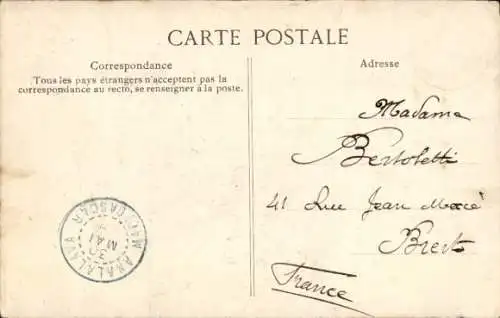 CARTE POSTALE
Correspondance
Tous les pays étrangers n'acceptent pas la
correspondance au recto, se renseigner à la poste.
Adresse
Madame
Bertoletti
41 Rue Jean Macé
Brest
France
ANALALAVA
30
MAI
MADAGASCAR